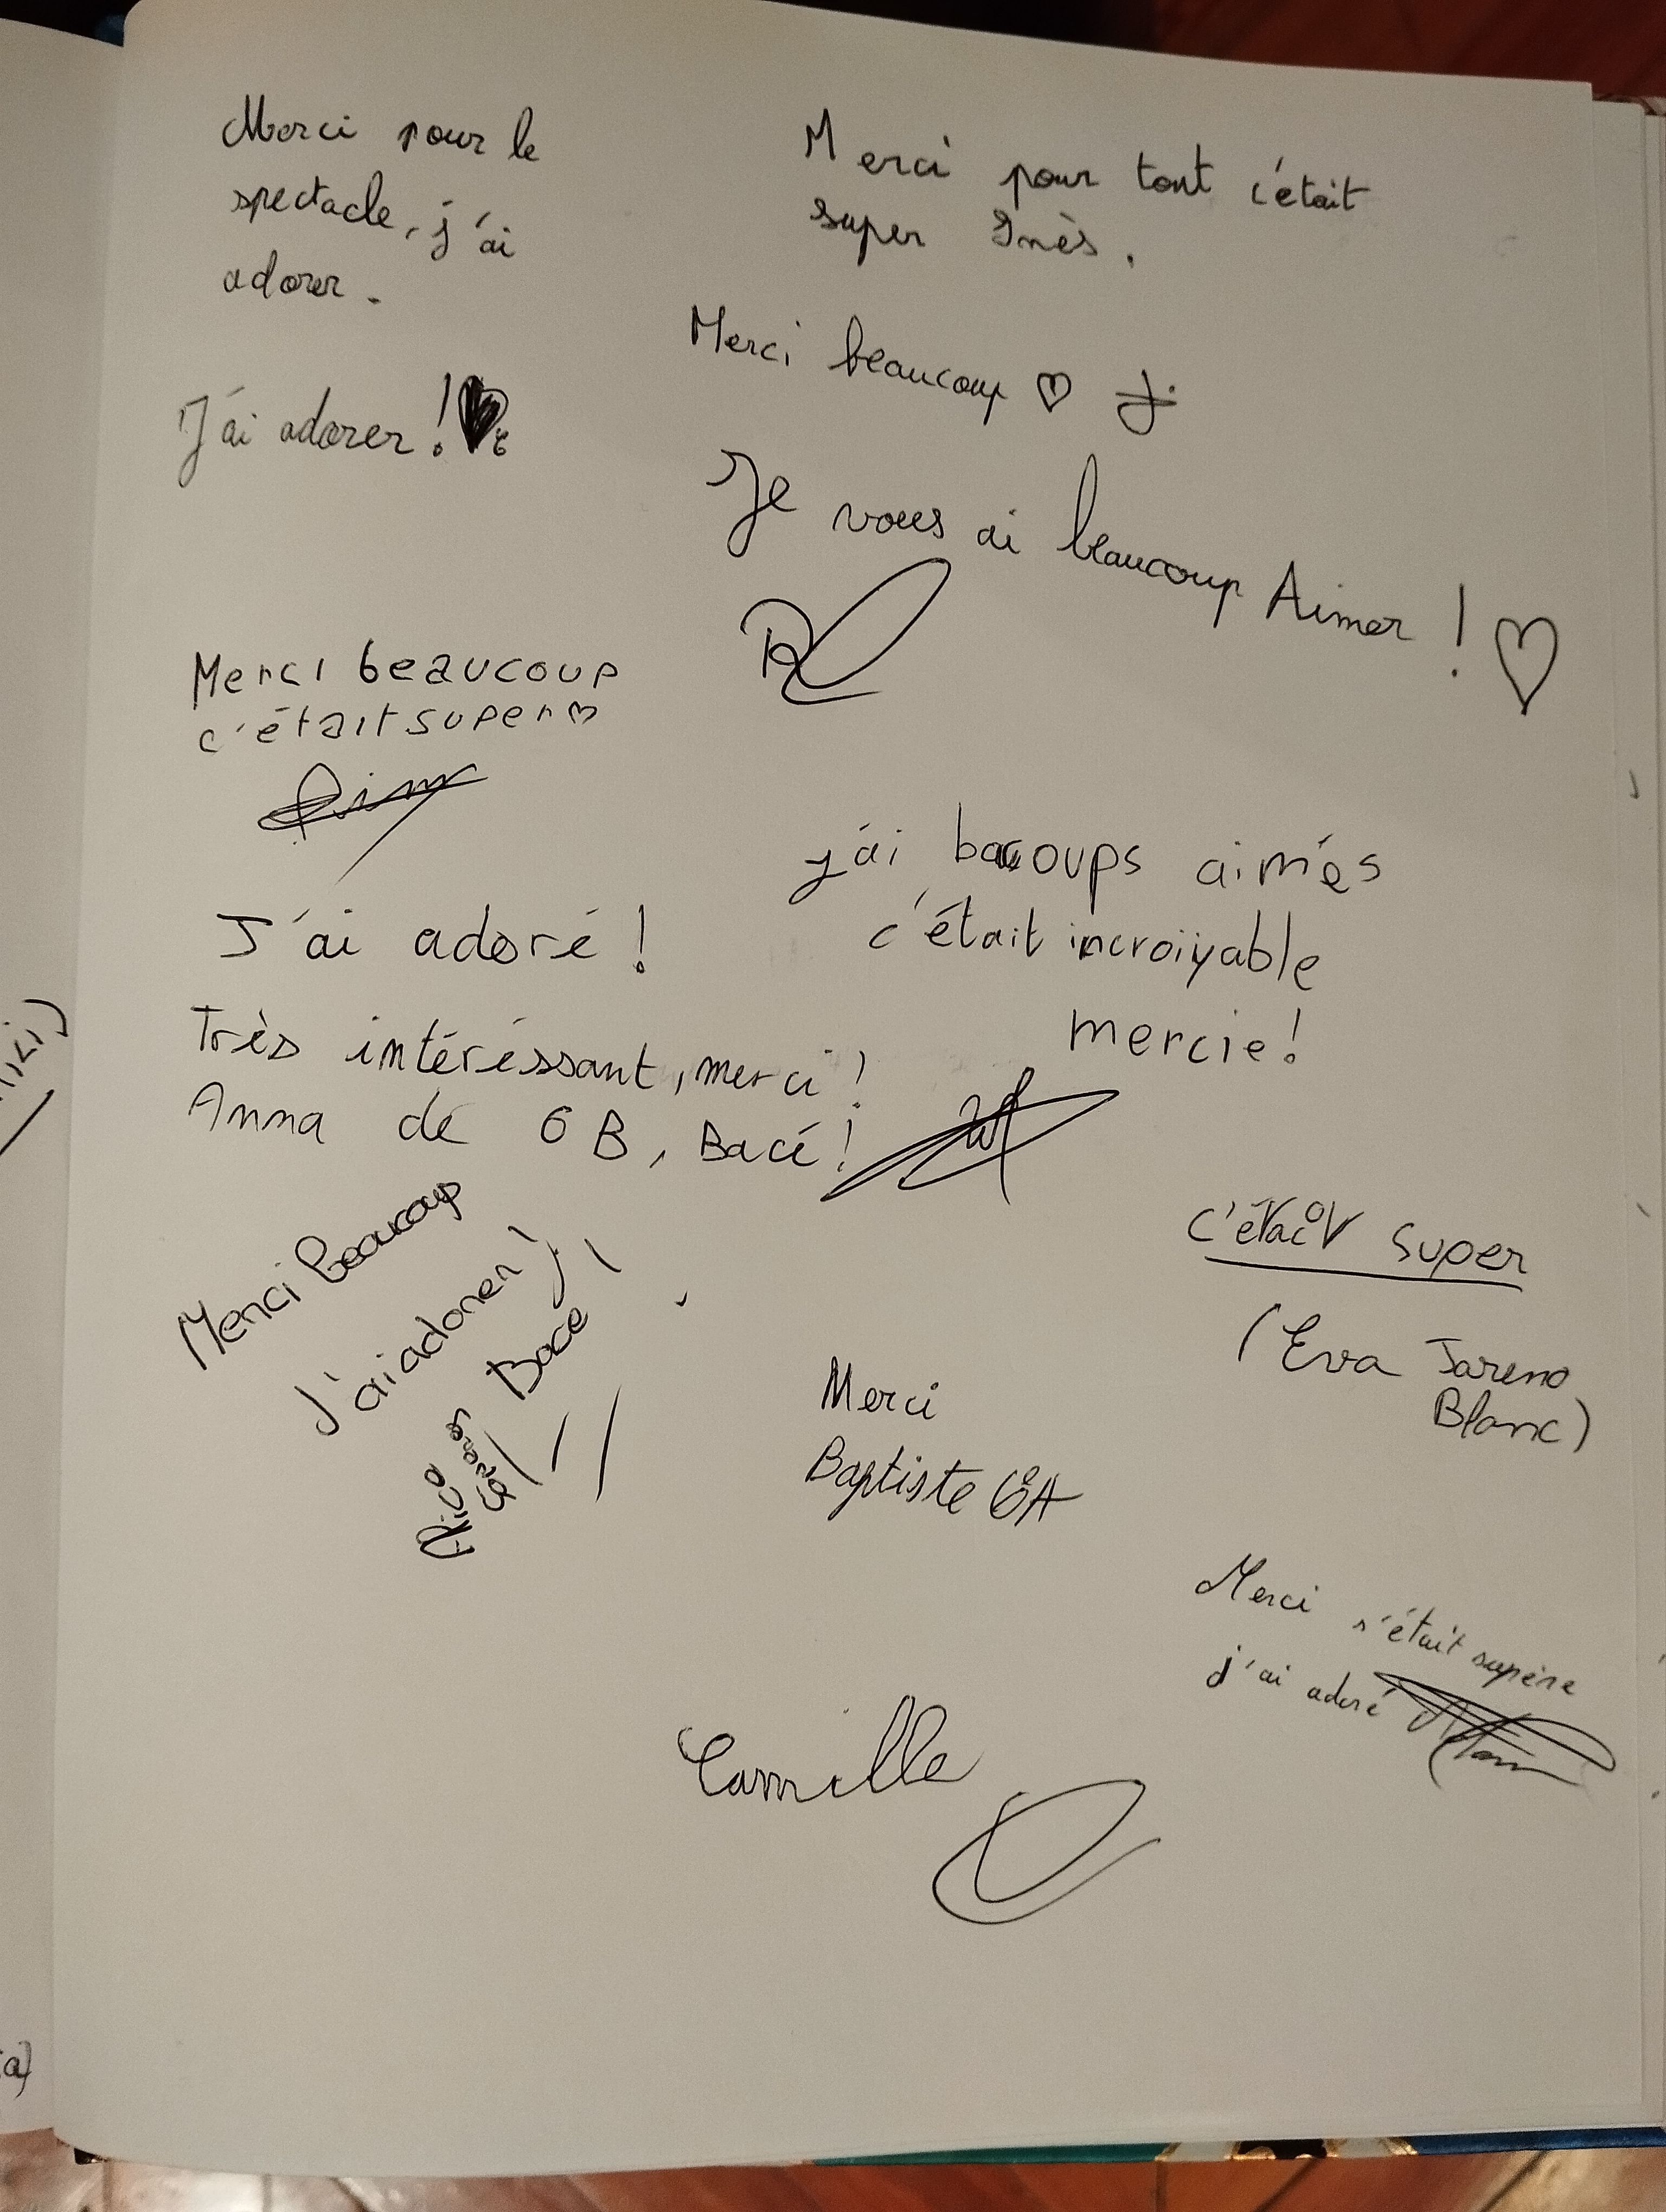 Merci pour le
spectacle, j'ai
adorer.
Merci pour tout c'était
super Inès.
Merci beaucoup ♡
J'ai adorer !
Je vous ai beaucoup Aimer ! ♡
R
Merci beaucoup
c'était super ♡
j'ai bacoups aimés
c'était incroiyable
mercie !
J'ai adoré !
Très intéréssant, merci !
Anna de 6 B, Bacé !
Merci Beaucoup
J'ai adorer !
Bace !
Rico
c'était super
(Eva Jareno
Blanc)
Merci
Baptiste 6°A
Merci s'était supère
j'ai adoré
Camille